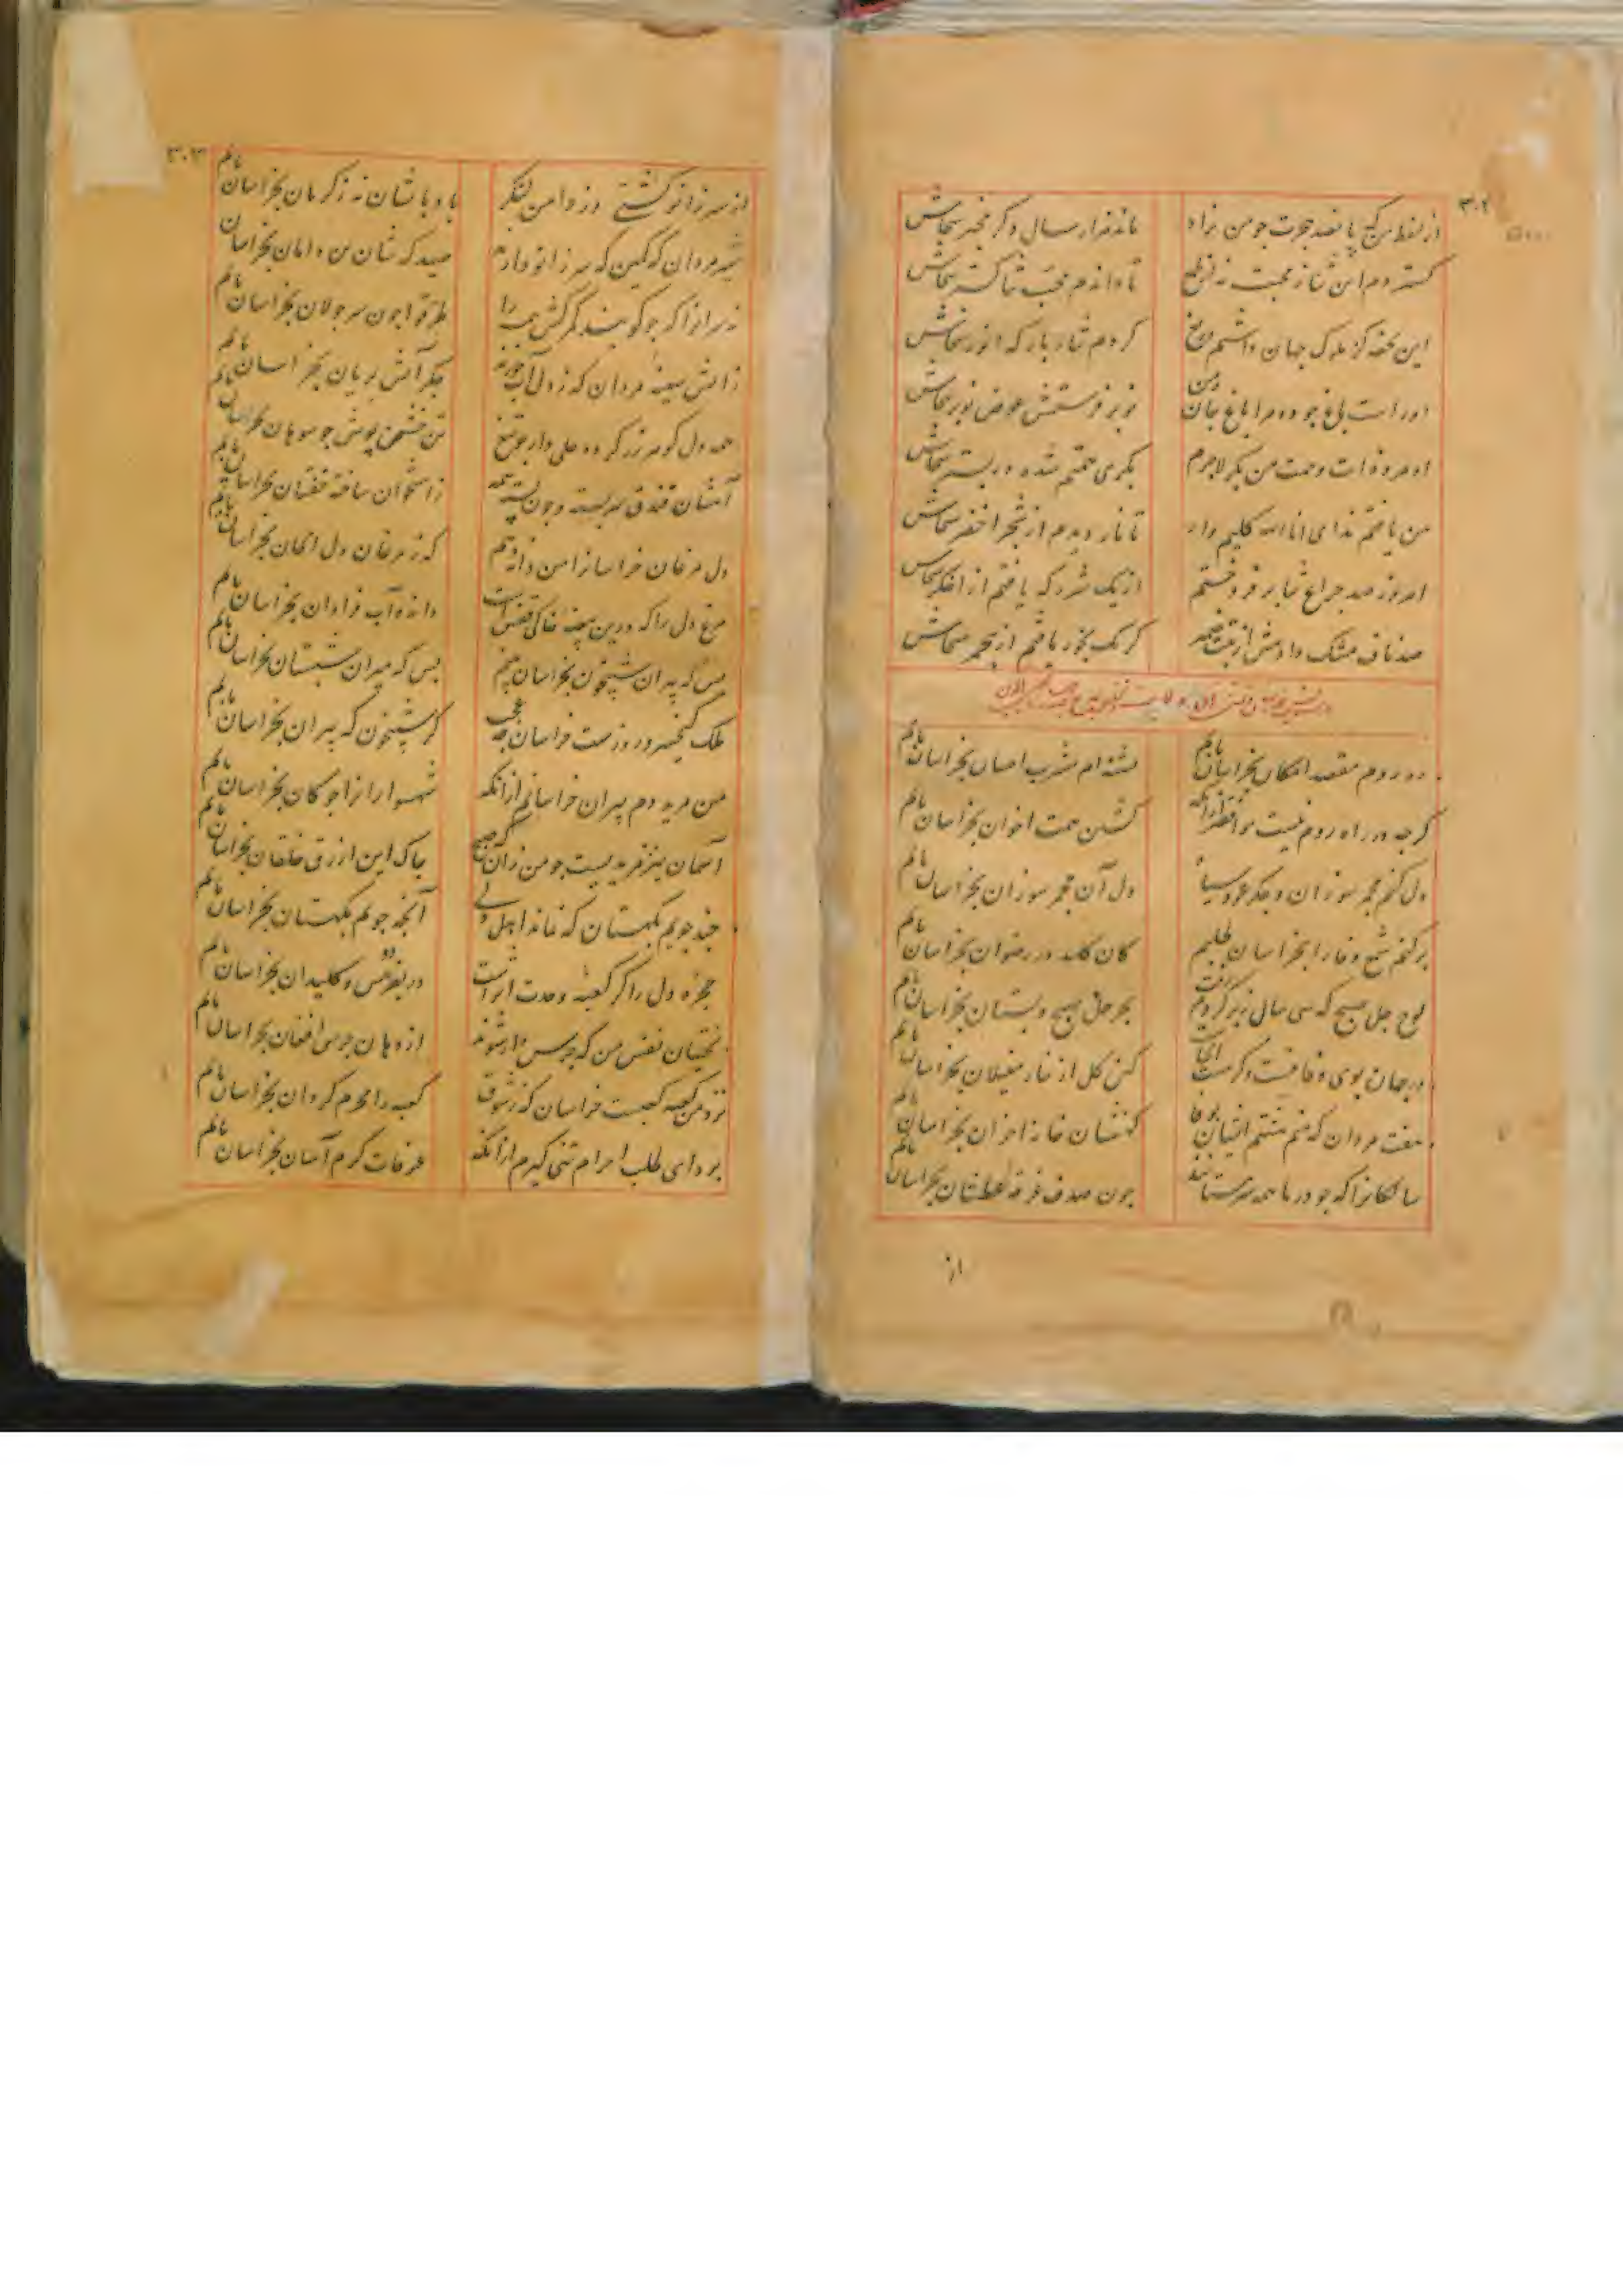 ۳۰۲
از لفظ من که پانصد هجرت چو من نزاد
ماند هزار سال دگر مخبر سخاش
گسترده‌ام این ثنا ز محبت نه از طمع
تا داندم محب ثنا گستر سخاش
این تحفه کز ملوک جهان داشتم دریغ
کردم نثار بارگه انور سخاش
او راست باغ جود و مرا باغ جان
نوبر فرستمش عوض نوبر سخاش
بکری ختم شده در بستر سخاش
من یافتم ندای انا الله کلیم وار
تا نار دیدم از شجر اخضر سخاش
امروز صد چراغ ثنا بر فروختم
از یک شرر که یافتم از اخگر سخاش
صد ناف مشک دادمش از تبت ضمیر
گر یک بخور یافتم از مجمر سخاش
رهروم مقصد امکان بخراسان یابم
تشنه‌ام مشرب احسان بخراسان یابم
گرچه در راه روم نیست مرا
گلشن همت اخوان بخراسان یابم
دل کنم مجمر سوزان و جگر عود سیاه
دل آن مجمر سوزان بخراسان یابم
برکنم شمع و فا را بخراسان طلبم
کان کلید در رضوان بخراسان یابم
لوح چل صبح که سی سال ز بر کردم رفت
بهر چل صبح دبستان بخراسان یابم
در جهان بوی وفا نیست وگر هست آنجاست
کین گل از خار مغیلان بخراسان یابم
هفت مردان که منم هشتم ایشان بوفا
که نشان خانه اخوان بخراسان یابم
سالکانرا که چو دریا همه سرمستانند
چون صدف غرقه عطشان بخراسان یابم
از
۳۰۳
از سر زانو کشتی وز دامن لنگر
بادباشان نه ز کرمان بخراسان یابم
شیر مردان که کمین که سر زانو دارند
صیدگه شان بن دامان بخراسان یابم
طرقوا چون سر جولان بخراسان یابم
ز آتش سینه مردان که ز دل آب خورند
جگر آتش بریان بخراسان یابم
همه دل گوهر و رز کرده علی وار چو تیغ
تن خشن پوش چو سوهان بخراسان یابم
آستان فندق سربسته و چون پسته همه
ز استخوان ساخته خفتان بخراسان یابم
دل مرغان خراسانرا من دانه دهم
که ز مرغان دل الحان بخراسان یابم
مرغ دل را که درین بیضه خاکی قفس است
دانه و آب فراوان بخراسان یابم
بس که پیران شبیخون بخراسان بینم
بس که میران شبستان بخراسان یابم
ملک کیخسرو روزست خراسان چه عجب
کز شبیخون که پیران بخراسان یابم
من مرید دم پیران خراسانم از آنکه
شهسوارانرا جولان بخراسان یابم
آسمان نیز مریدیست چو من زان گه صبح
چاک این ازرق خلقان بخراسان یابم
چند جویم بکهستان که نماند اهل دلی
آنچه جویم بکهستان بخراسان یابم
حجره دل را کز کعبه وحدت اثر است
در بفردوس و کلیدان بخراسان یابم
بختیان نفس من که جرس دار شوند
از دهان جرس افغان بخراسان یابم
نزد من کعبه کعبست خراسان که ز شوق
کعبه را محرم گردان بخراسان یابم
بردای طلب احرام تمنی گیرم از آنکه
عرفات کرم آسان بخراسان یابم